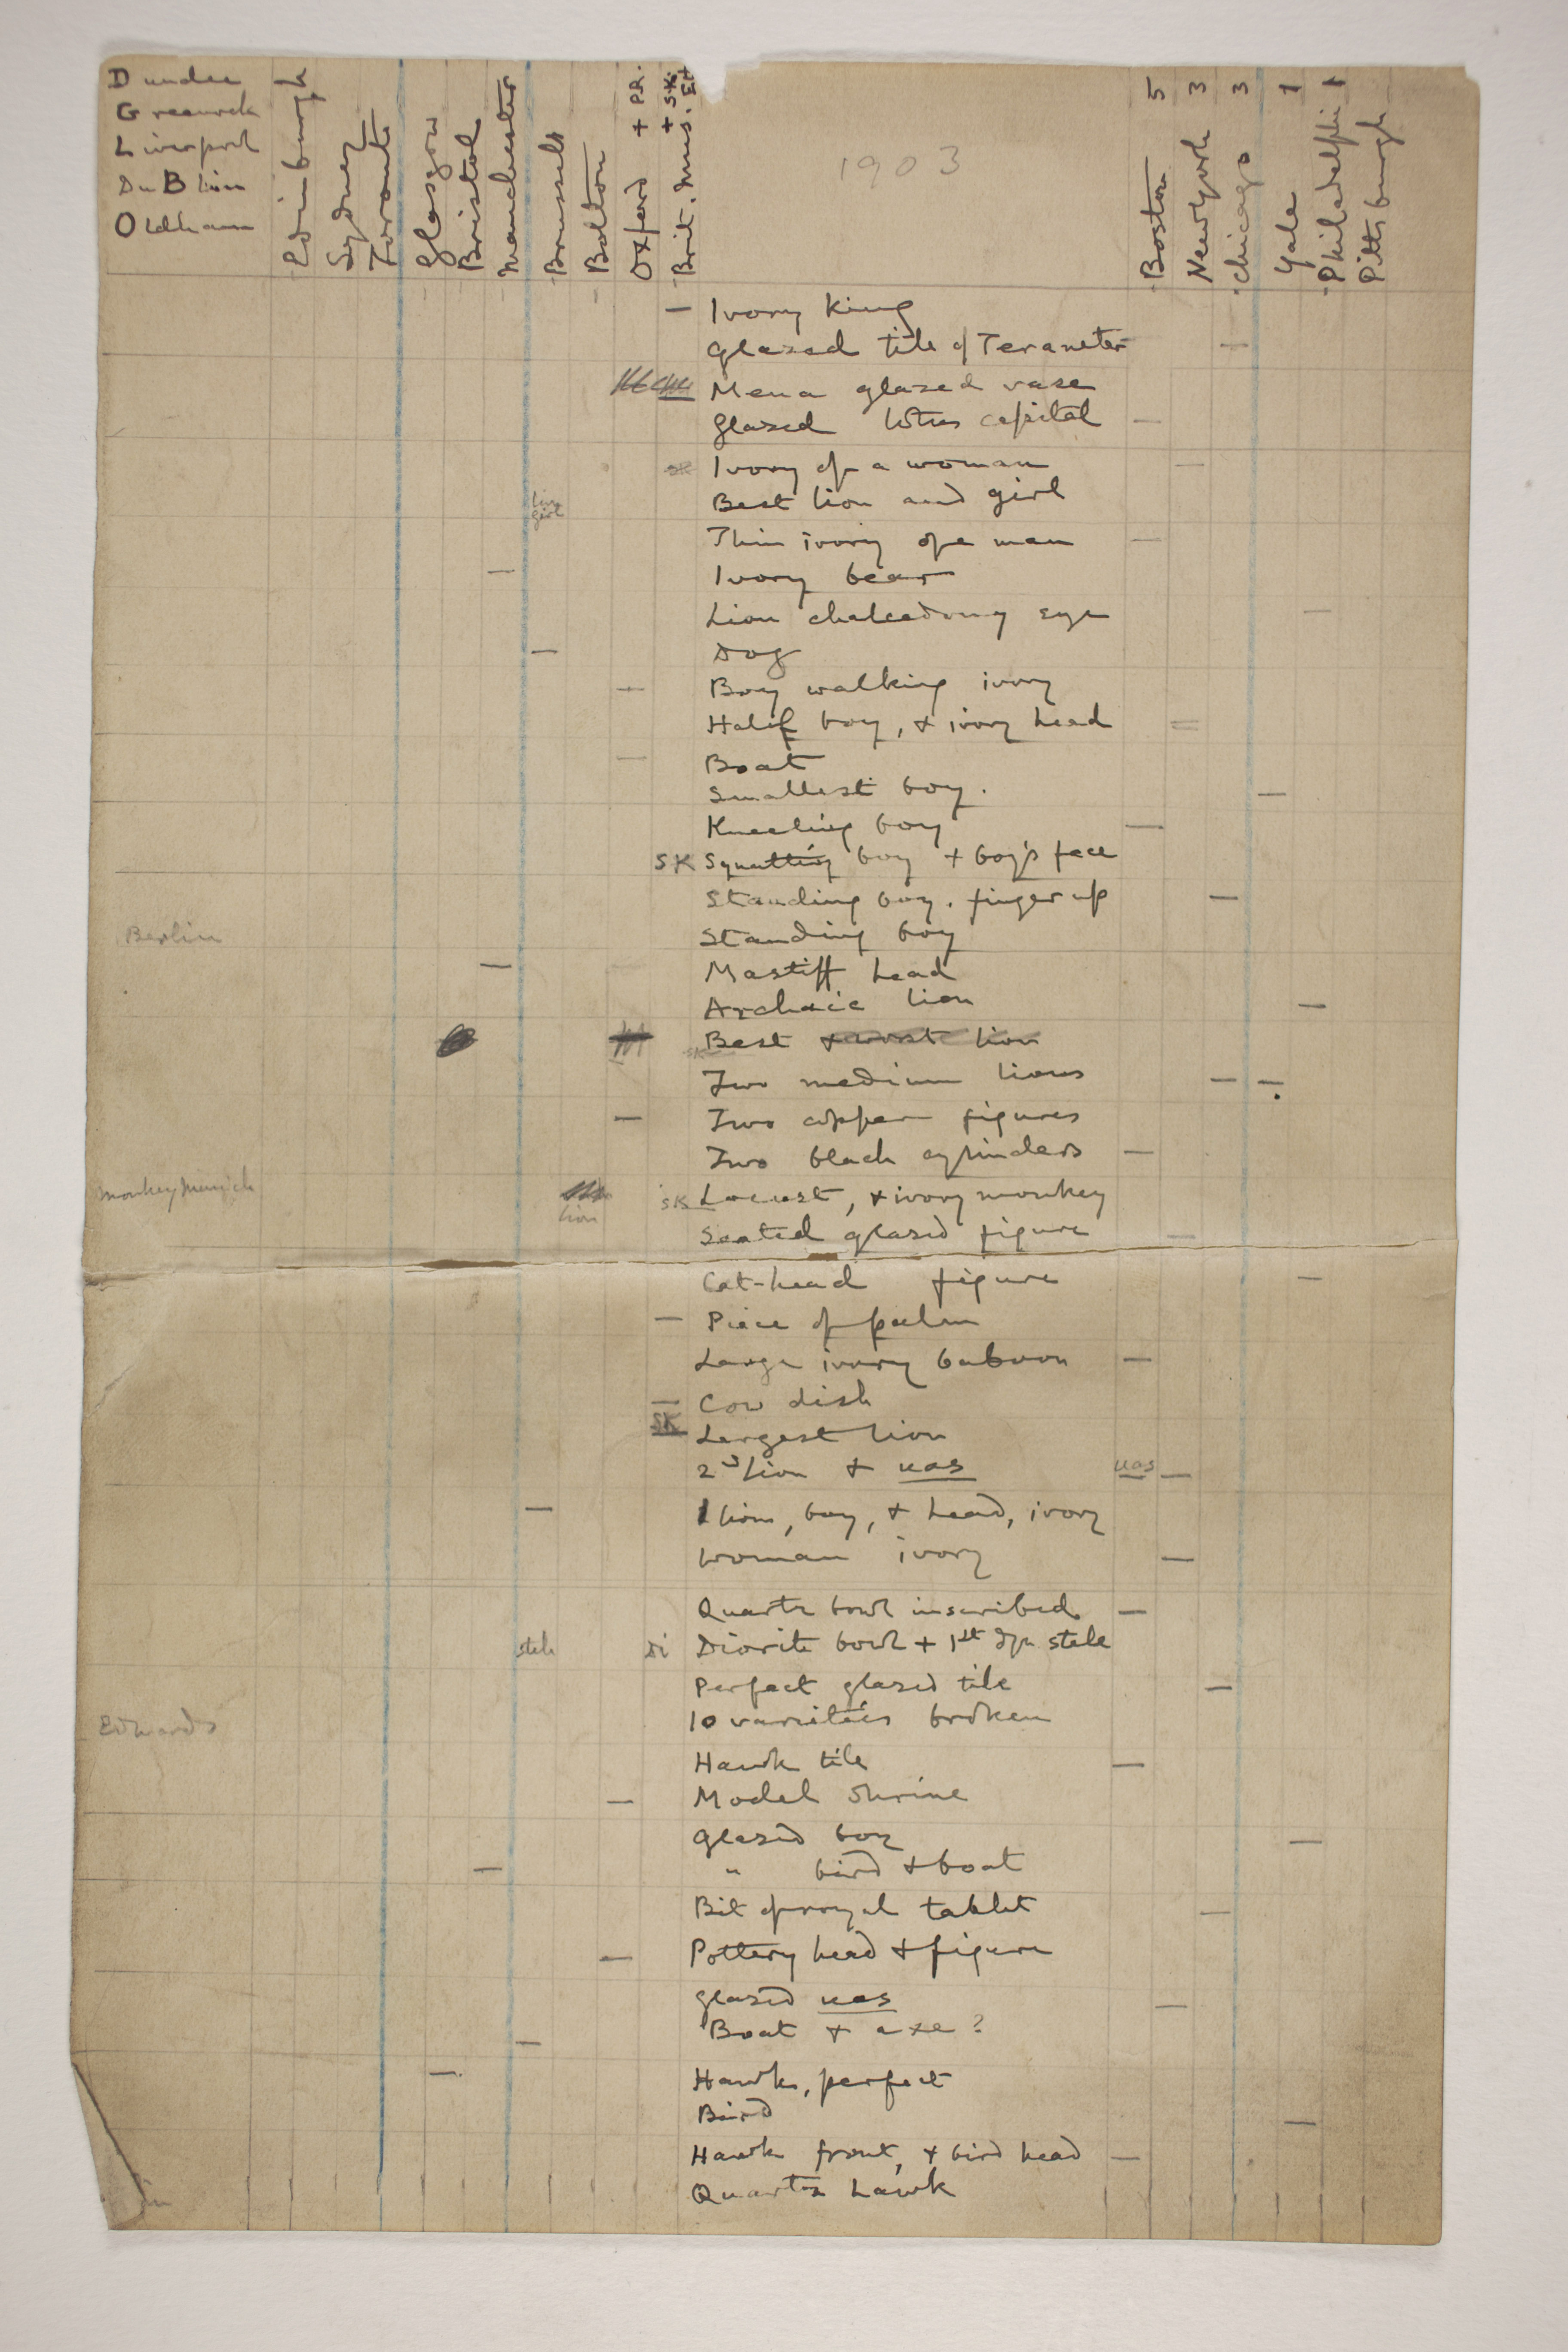 Dundee
Greenock
Liverpool
DuBlin
Oldham
Edinburgh
Sydney
Toronto
Glasgow
Bristol
Manchester
Brussels
Bolton
Oxford + P.R.
Brit. Mus. + S.K.
1903
Boston 5
New York 3
Chicago 3
Yale 1
Philadelphi 1
Pittsburgh
Ivory King
Glazed tile of Teraneter
Mena glazed vase
Glazed lotus capital
SK Ivory of a woman
Best lion and girl
lion
girl
Thin ivory of a man
Ivory bear
Lion chalcedony eye
Dog
Boy walking ivory
Half boy, + ivory head
Boat
Smallest boy.
Kneeling boy
SK Squatting boy + boy's face
Standing boy. finger up
Berlin Standing boy
Mastiff head
Archaic lion
SK Best + worst lion
Two medium lions
Two copper figures
Two black cylinders
monkey Munich SK Locust, + ivory monkey
lion
Seated glazed figure
Cat-head figure
Piece of palm
Large ivory baboon
Cow dish
SK Largest lion
2nd lion + uas uas
1 lion, boy, + head, ivory
Woman ivory
Quartz bowl inscribed
stele Di Diorite bowl + 1st dyn stele
Perfect glazed tile
Edwards 10 varieties broken
Hawk tile
Model shrine
Glazed boy
" bird + boat
Bit of royal tablet
Pottery head + figure
glazed uas
Boat + axe?
Hawk, perfect
Bird
Hawk front, + bird head
Quartz hawk